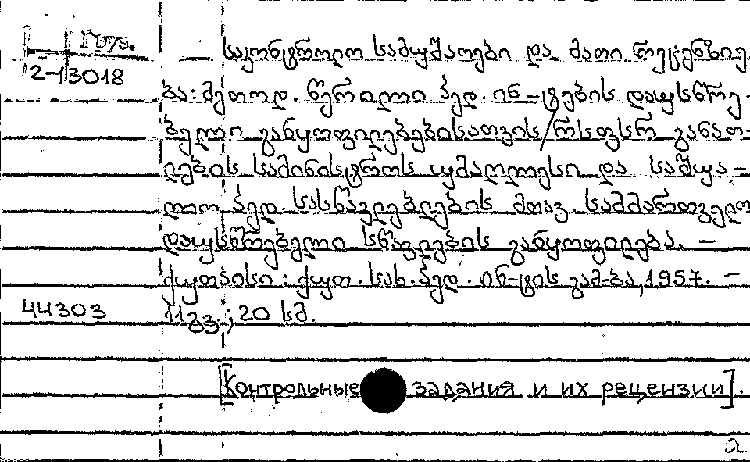 Груз.
2-13018
საკონტროლო სამუშაოები და მათი რეცენზიე-
ბა: მეთოდ. წერილი პედ. ინ-ტების დაუსწრე-
ბელი განყოფილებებისათვის / რსფსრ განათ-
ლების სამინისტროს უმაღლესი და საშუა-
ლო პედ. სასწავლებლების მთავ. სამმართველო
დაუსწრებელი სწავლების განყოფილება. –
ქუთაისი : ქუთ. სახ. პედ. ინ-ტის გამ-ბა, 1957. –
44303 11გვ. ; 20 სმ.
[Контрольные задания и их рецензии].